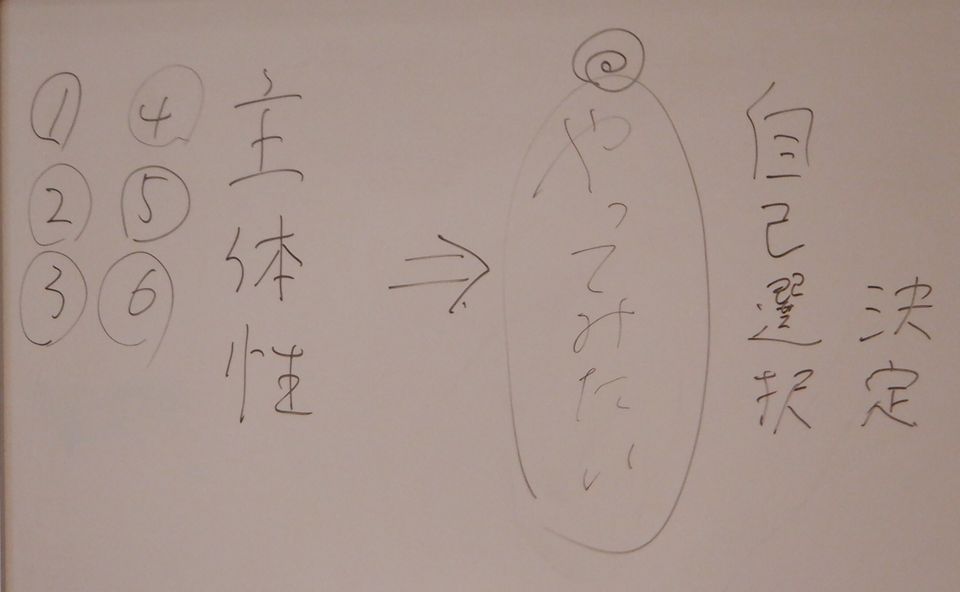 ① ④
② ⑤
③ ⑥
主体性
⇒
◎
やってみたい
自己選択
決定